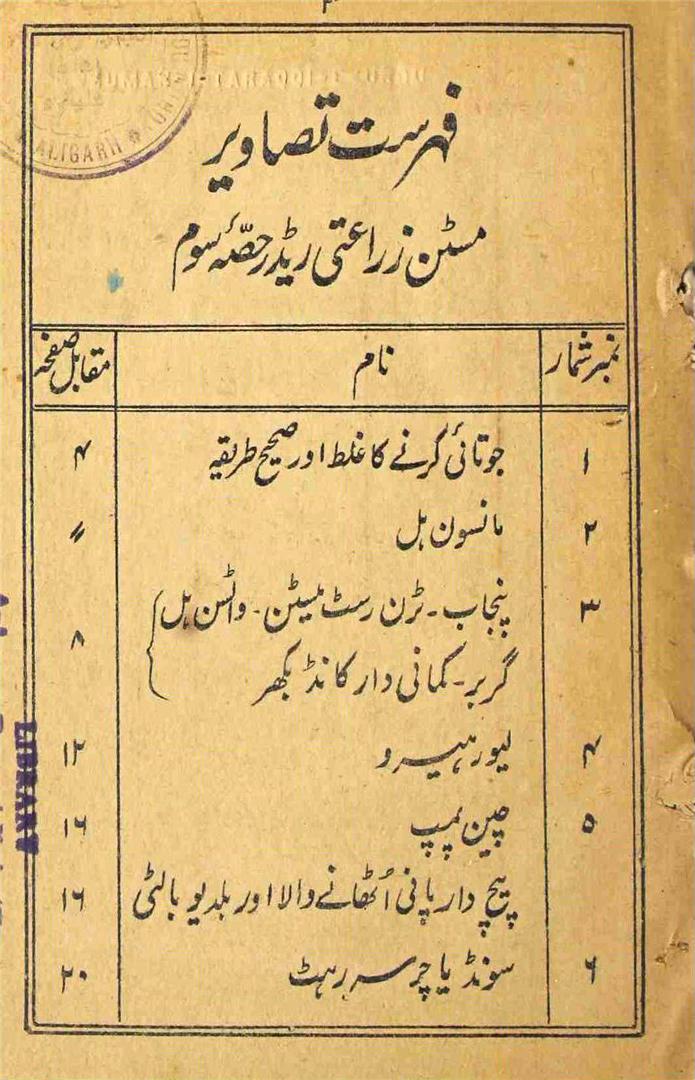 ۳
فہرست تصاویر
مسٹن زراعتی ریڈر حصّہ سوم
نمبر شمار نام مقابل صفحہ
۱ جوتائی کرنے کا غلط اور صحیح طریقہ ۴
۲ مانسون ہل 〃
۳ پنجاب۔ ٹرن رسٹ میسٹن۔ واٹسن ہل ۸
گربر۔ کمانی دار کانڈ بکھر
۴ لیور ہیرو ۱۲
۵ چین پمپ ۱۶
پیچ دار پانی اُٹھانے والا اور بلدیو بالٹی ۱۶
۶ سونڈیا چرسہ رہٹ ۲۰
ALIGARH
LIBRARY